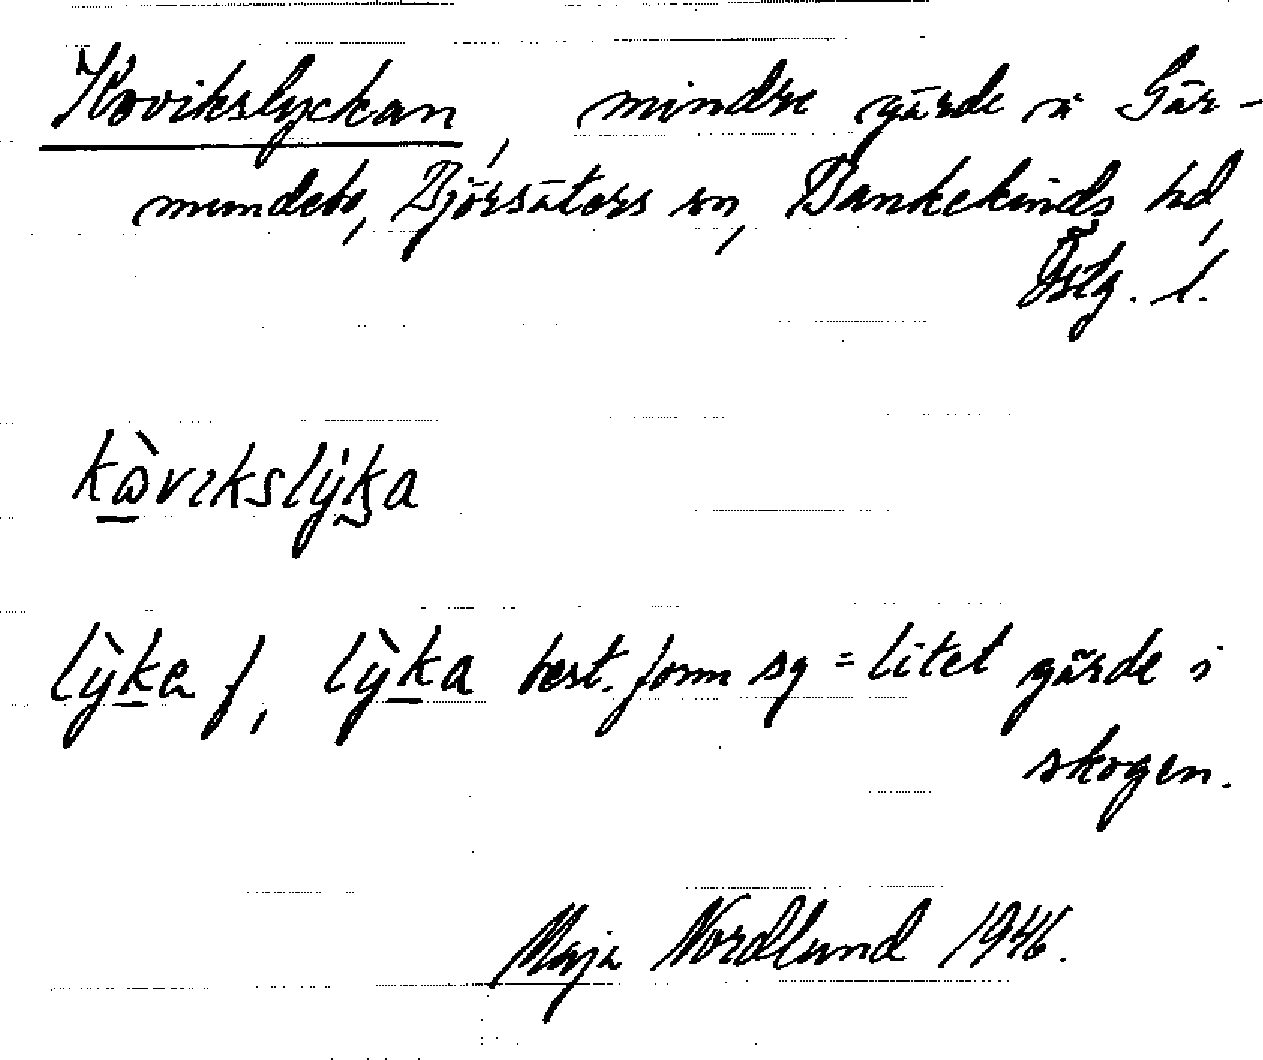 Kovikslyckan, mindre gärde i Gär-
mundebo, Björsäters sn, Bankekinds hd,
Östg. l.
kòvikslýka
lỳka f, lỳka best. form sg = litet gärde i
skogen.
Maja Nordlund 1946.